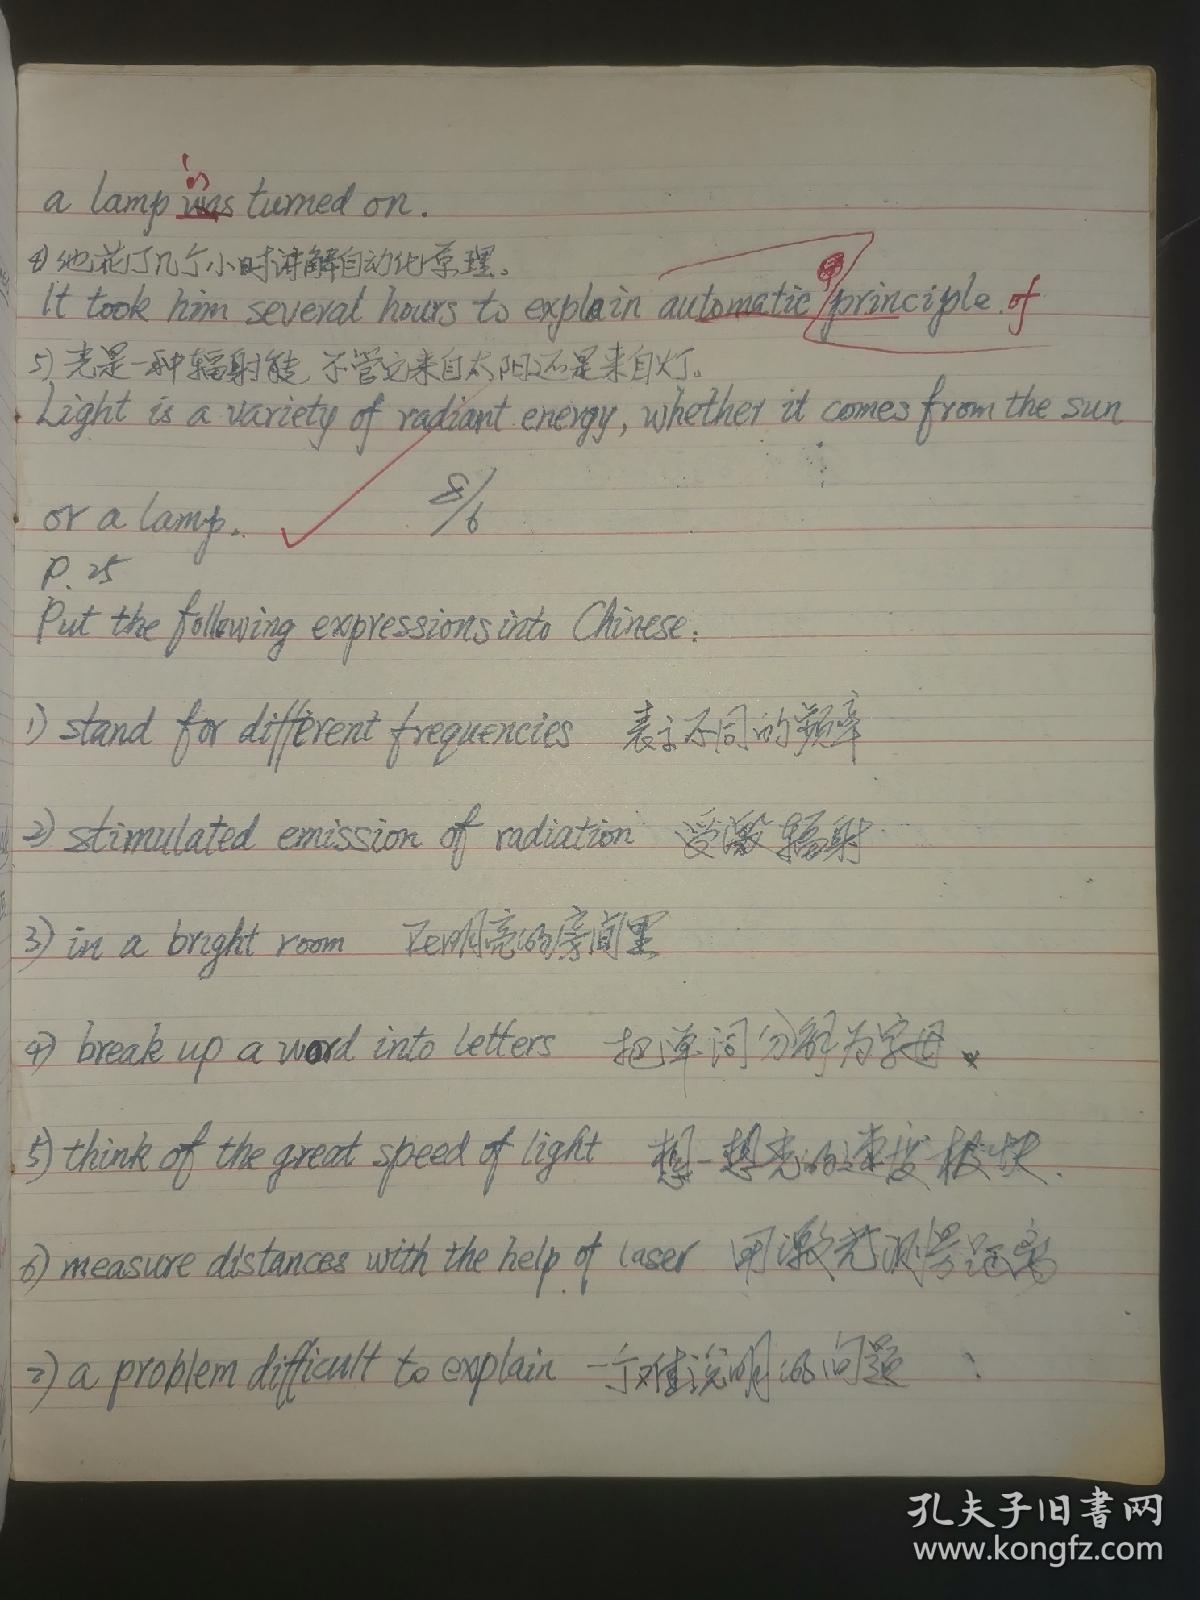 is
a lamp was turned on.
4) 他花了几个小时讲解自动化原理。
It took him several hours to explain automatic principle. of
5) 光是一种辐射能, 不管它来自太阳还是来自灯。
Light is a variety of radiant energy, whether it comes from the sun
or a lamp.
8/6
P. 25
Put the following expressions into Chinese:
1) stand for different frequencies 表示不同的频率
2) stimulated emission of radiation 受激辐射
3) in a bright room 在明亮的房间里
4) break up a word into letters 把单词分解为字母.
5) think of the great speed of light 想一想光的速度极快.
6) measure distances with the help of laser 用激光测量距离
7) a problem difficult to explain 一个难说明的问题
孔夫子旧书网
www.kongfz.com